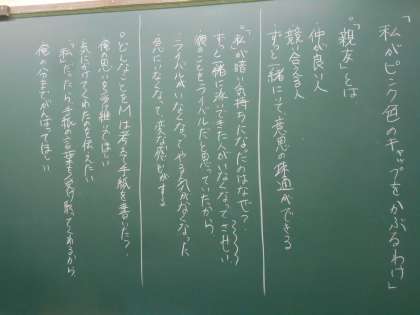 「私がピンク色のキャップをかぶるわけ」
○"親友"とは
・仲が良い人
・競い合える人
・ずっと一緒にいて意思の疎通ができる
○「私」が暗い気持ちになったのはなぜ?
ずっと一緒に泳いできた人がいなくなってさみしい
俺のことをライバルだと思っていたから
ライバルがいなくなってやる気がなくなった
急にいなくなって、変な感じがする
○どんなことをMは考えて手紙を書いた?
俺の思いを受け継いでほしい
気にかけてくれたのを伝えたい
「私」だったら手紙の言葉を受け取ってくれるから
俺の分までがんばってほしい